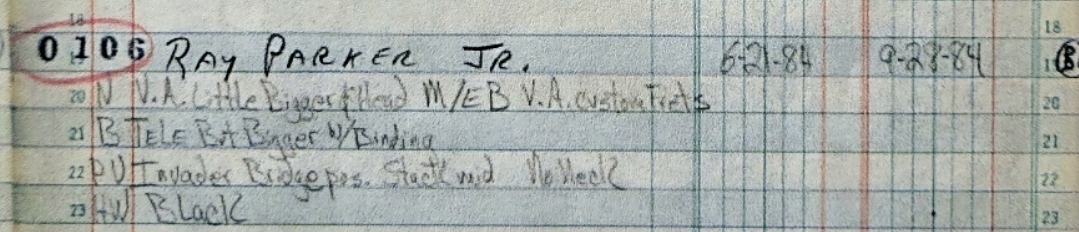 18 18
0106 RAY PARKER JR. 6-21-84 9-28-84 B
20 N V.A. Little Bigger Head M/EB V.A. custom Frets 20
21 B TELE But Bigger W/Binding 21
22 PU Invader Bridge pos. Stack mid No Neck 22
23 HW Black 23